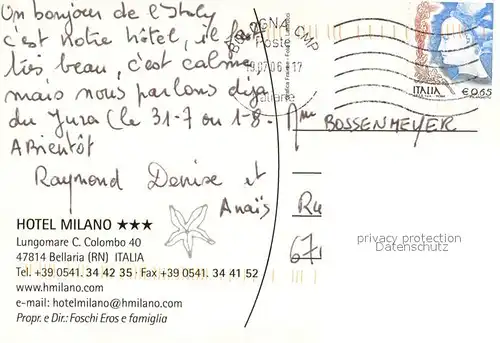 Un bonjour de l'Italy
c'est notre hôtel, il fait
très beau, c'est calme
mais nous parlons déja
du Jura (le 31-7 ou 1-8.
A Bientôt
Raymond Denise et
Anaïs
HOTEL MILANO ★★★
Lungomare C. Colombo 40
47814 Bellaria (RN) ITALIA
Tel. +39 0541. 34 42 35 Fax +39 0541. 34 41 52
www.hmilano.com
e-mail: hotelmilano@hmilano.com
Propr. e Dir.: Foschi Eros e famiglia
BOLOGNA CMP
Poste
19.07.06
ITALIA
€0,65
BOSSENMEYER
Ru
67
privacy protection
Datenschutz